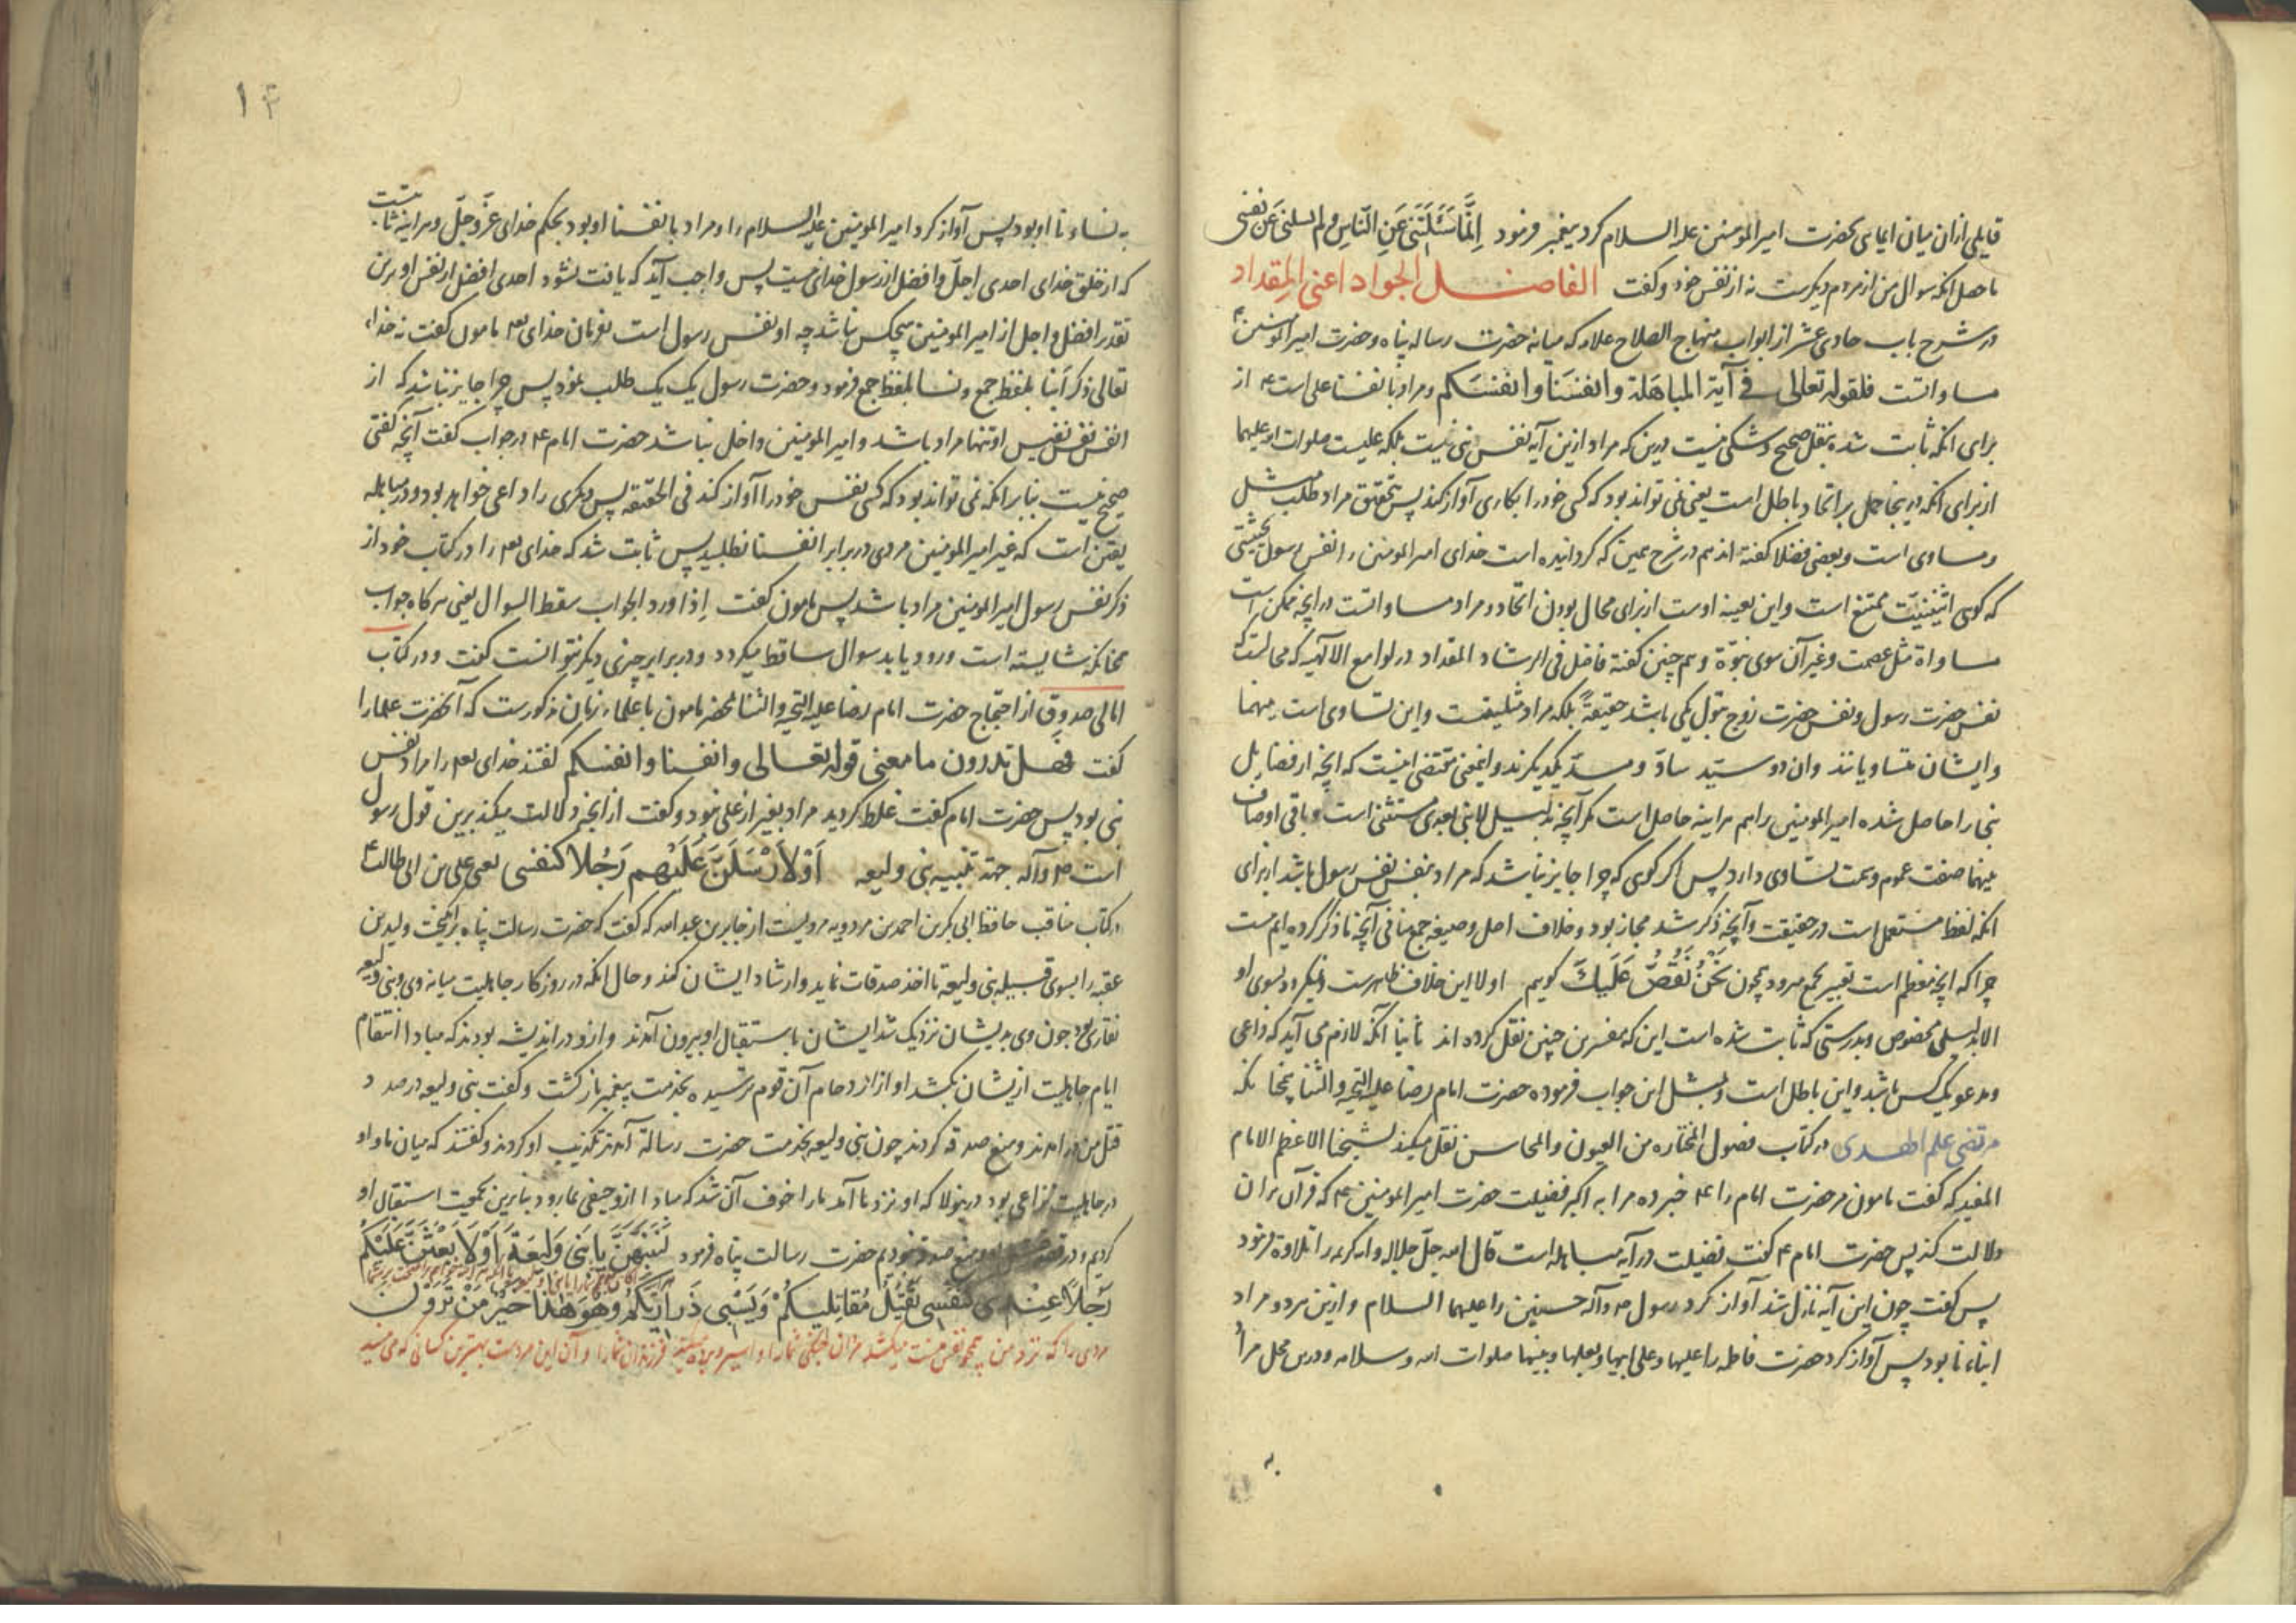 قایلی ازان میان ایمایی بحضرت امیر المومنین علیه السلام کرد پیغمبر فرمود اِنَّمَا سَئَلْتَنی عَنِ النّاسِ ولم تسلنی عَن نفسی
حاصل انکه سوال من از مردم دیکرست نه از نفس خود و کفت الفاضل الجواد اعنی المقداد
در شرح باب حادی عشر از ابواب منهاج الصلاح علامه که میانه حضرت رساله پناه و حضرت امیر المومنین ع
مساواتست فلقوله تعالی فی آیة المباهَلة وانفسَنا وانفسَکم ومراد بانفسنا علی است ع از
برای انکه ثابت شده بنقل صحیح وشکی نیست درین که مراد ازین آیه نفس نبی نیست بلکه علیست صلوات الله علیهما
از برای انکه در ینجا حمل بر اتحاد باطل است یعنی نمی تواند بود که کسی خود را بکاری آواز کند پس بتحقیق مراد طلب مثل
ومساوی است وبعضی فضلا کفته اند هم در شرح همین که کردانیده است خدای امیر المومنین را نفس رسول بحیثیتی
که کویی اثنینیّت ممتنع است واین بعینه اوست از برای محال بودن اتحاد ومراد مساواتست در انچه ممکن است
مساواة مثل عصمت وغیر آن سوی نبوّة وهم چنین کفته فاضل فی الرشاد المقداد در لوامع الالهیه که محالست
نفس حضرت رسول ونفس حضرت زوج بتول یکی باشد حقیقةً بلکه مراد مثلیتست واین تساوی است بینهما
وایشان متساویانند وان دو سیّد سادّ ومسدّ یکدیکرند واینمعنی مقتضی اینست که انچه از فضایل
نبی را حاصل شده امیر المومنین را هم هراینه حاصل است مکر آنچه بدلیل لا نبی بعدی مستثنی است وباقی اوصاف
بینهما صفت عموم وسمت تساوی دارد پس اکر کویی که چرا جایز نباشد که مراد بنفس نفس رسول باشد از برای
انکه لفظ مستعمل است در حقیقت وآنچه ذکر شد مجاز بود وخلاف اصل وصیغه جمع منافی آنچه ما ذکر کرده ایم نیست
چرا که انچه معظم است تعبیر بجمع میرود چون نَحْنُ نَقُصُّ عَلَیكَ کویم اولا این خلاف ظاهرست ونمیکرود بسوی او
الا بدلیلی مخصوص وبدرستی که ثابت شده است این که مفسرین چنین نقل کرده اند ثانیا انکه لازم می آید که داعی
ومدعو یک کس باشد واین باطل است وبمثل این جواب فرموده حضرت امام رضا علیه التحیه والثنا بنحا نکه
مرتضی علم الهدی در کتاب فصول المختاره من العیون والمحاسن نقل میکند لشیخنا الاعظم الامام
المفید که کفت مامون مر حضرت امام را ع خبر ده مرا به اکبر فضیلت حضرت امیر المومنین ع که قرآن بران
دلالت کند پس حضرت امام ع کفت فضیلت در آیه مباهله است قال الله جلّ جلاله وایه کریمه را تلاوة فرمود
پس کفت چون این آیه نازل شد آواز کرد رسول ص وآله حسنین را علیهما السلام وازین مر دو مراد
ابناء نا بود پس آواز کرد حضرت فاطمه را علیها وعلی ابیها وبعلها وبنیها صلوات الله وسلامه ودرین محل مراد
به
۱۴
به نساء نا او بود پس آواز کرد امیر المومنین علیه السلام را ومراد بانفسنا او بود بحکم خدای عزّ وجلّ وهراینه ثابتست
که از خلق خدای احدی اجلّ وافضل از رسول خدای نیست پس واجب آید که یافت نشود احدی افضل از نفس او برین
تقدیر افضل واجل از امیر المومنین هیچکس نباشد چه او نفس رسول است بفرمان خدای تعه مامون کفت نه خداء
تعالی ذکر اَبنا بلفظ جمع ونسا بلفظ جمع فرمود وحضرت رسول یک یک طلب نمود پس چرا جایز نباشد که از
انفس نفس نفیس او تنها مراد باشد وامیر المومنین داخل نباشد حضرت امام ع در جواب کفت آنچه کفتی
صحیح نیست بنا بر انکه نمی تواند بود که کسی نفس خود را آواز کند فی الحقیقه پس دیکری را داعی خواهد بود ودر مباهله
یقین است که غیر امیر المومنین مردی در برابر انفسنا نطلبید پس ثابت شد که خدای تعه را در کتاب خود از
ذکر نفس رسول امیر المومنین مراد باشد پس مامون کفت اِذا ورد الجواب سقط السوال یعنی هرکاه جواب
بنحا نکه شایسته است ورود یابد سوال ساقط میکردد ودر برابر چیزی دیکر نتوانست کفت ودر کتاب
امالی صدوق از احتجاج حضرت امام رضا علیه التحیه والثنا بحضر مامون با علماء زمان مذکورست که آنحضرت علما را
کفت فهل تدرون ما معنی قوله تعالی وانفسنا وانفسکم کفتند خدای تعه را مراد نفس
نبی بود پس حضرت امام کفت غلط کردید مراد بغیر از علی نبود وکفت از انچه دلالت میکند برین قول رسول
است ص وآله جهة تنبیه بنی ولیعه اَوْ لاُرْسِلَنَّ عَلَیْهِم رَجُلا کنفسی یعنی علی بن ابی طالب ع
در کتاب مناقب حافظ ابی بکر بن احمد بن مردویه مرویست از جابر بن عبد الله که کفت که حضرت رسالت پناه برانکیخت ولید بن
عقبه را بسوی قبیله بنی ولیعه تا اخذ صدقات نماید وارشاد ایشان کند وحال انکه در روزکار جاهلیت میانه وی وبنی ولیعه
نقاری بود چون وی بدیشان نزدیک شد ایشان باستقبال او بیرون آمدند وازو در اندیشه بودند که مبادا انتقام
ایام جاهلیت ازیشان بکشد او از ازدحام آن قوم ترسیده بخدمت پیغمبر باز کشت وکفت بنی ولیعه در صدد
قتل من در امدند ومنع صدقه کردند چون بنی ولیعه بخدمت حضرت رسالة آمدند تکذیب او کردند وکفتند که میان ما واو
در جاهلیت نزاعی بود درینولا که او نزد ما آمد ما را خوف آن شد که مبادا ازو حیفی بما رود بنابرین بجمعیت استقبال او
کردیم ودر منع صدقه نبودیم حضرت رسالت پناه فرمود لَتَنْتَهُنَّ یا بَنی وَلیعَة اَوْ لَاَبْعَثَنَّ عَلَیْکُم
رَجُلاً عِنْدی کنَفْسی یَقْتُل مُقاتِلیکُمْ وَیَسْبی ذَراریکُم وهُوَ هٰذا خَیْرُ مَنْ تَرَوْن
مردی را که نزد من همچو نفس منست میکشد مردان جنکی شما را واسیر وبرده میکند فرزندان شما را وآن این مردست بهترین کسانی که می بینید